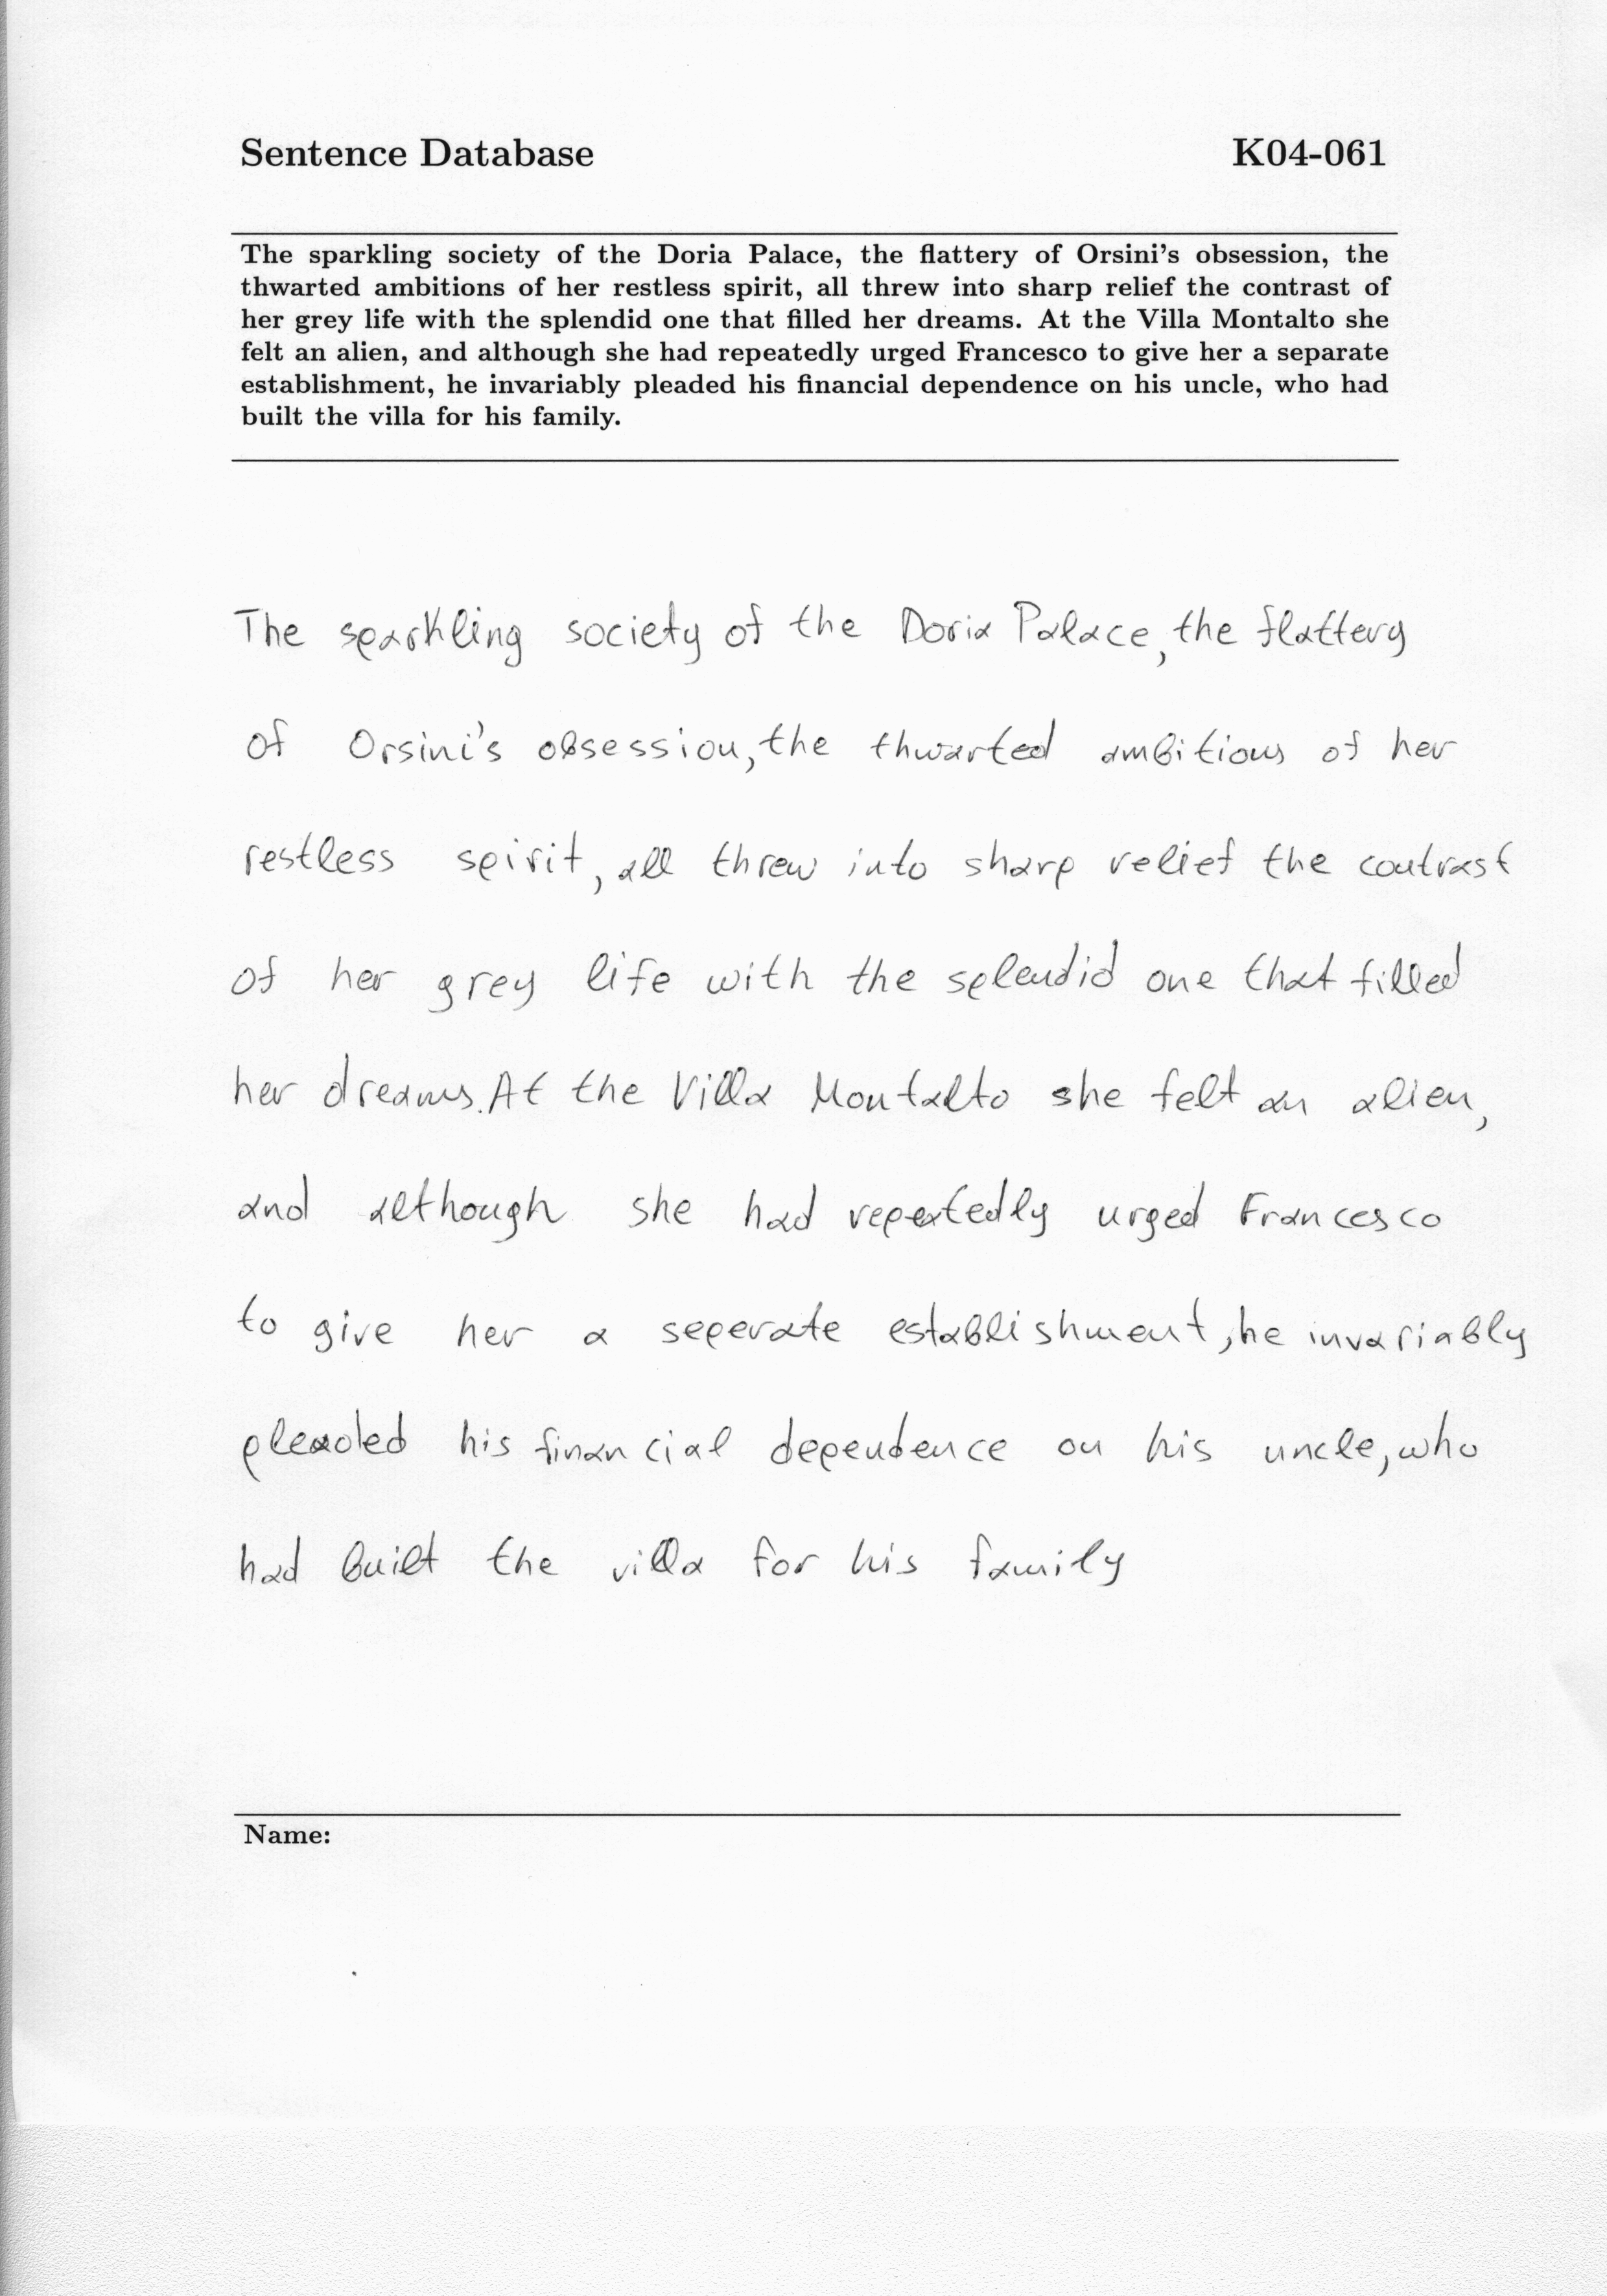 Sentence Database K04-061
The sparkling society of the Doria Palace, the flattery of Orsini's obsession, the
thwarted ambitions of her restless spirit, all threw into sharp relief the contrast of
her grey life with the splendid one that filled her dreams. At the Villa Montalto she
felt an alien, and although she had repeatedly urged Francesco to give her a separate
establishment, he invariably pleaded his financial dependence on his uncle, who had
built the villa for his family.
The sparkling society of the Doria Palace, the flattery
of Orsini's obsession, the thwarted ambitions of her
restless spirit, all threw into sharp relief the contrast
of her grey life with the splendid one that filled
her dreams. At the Villa Montalto she felt an alien,
and although she had repeatedly urged Francesco
to give her a seperate establishment, he invariably
pleaded his financial dependence on his uncle, who
had built the villa for his family
Name: